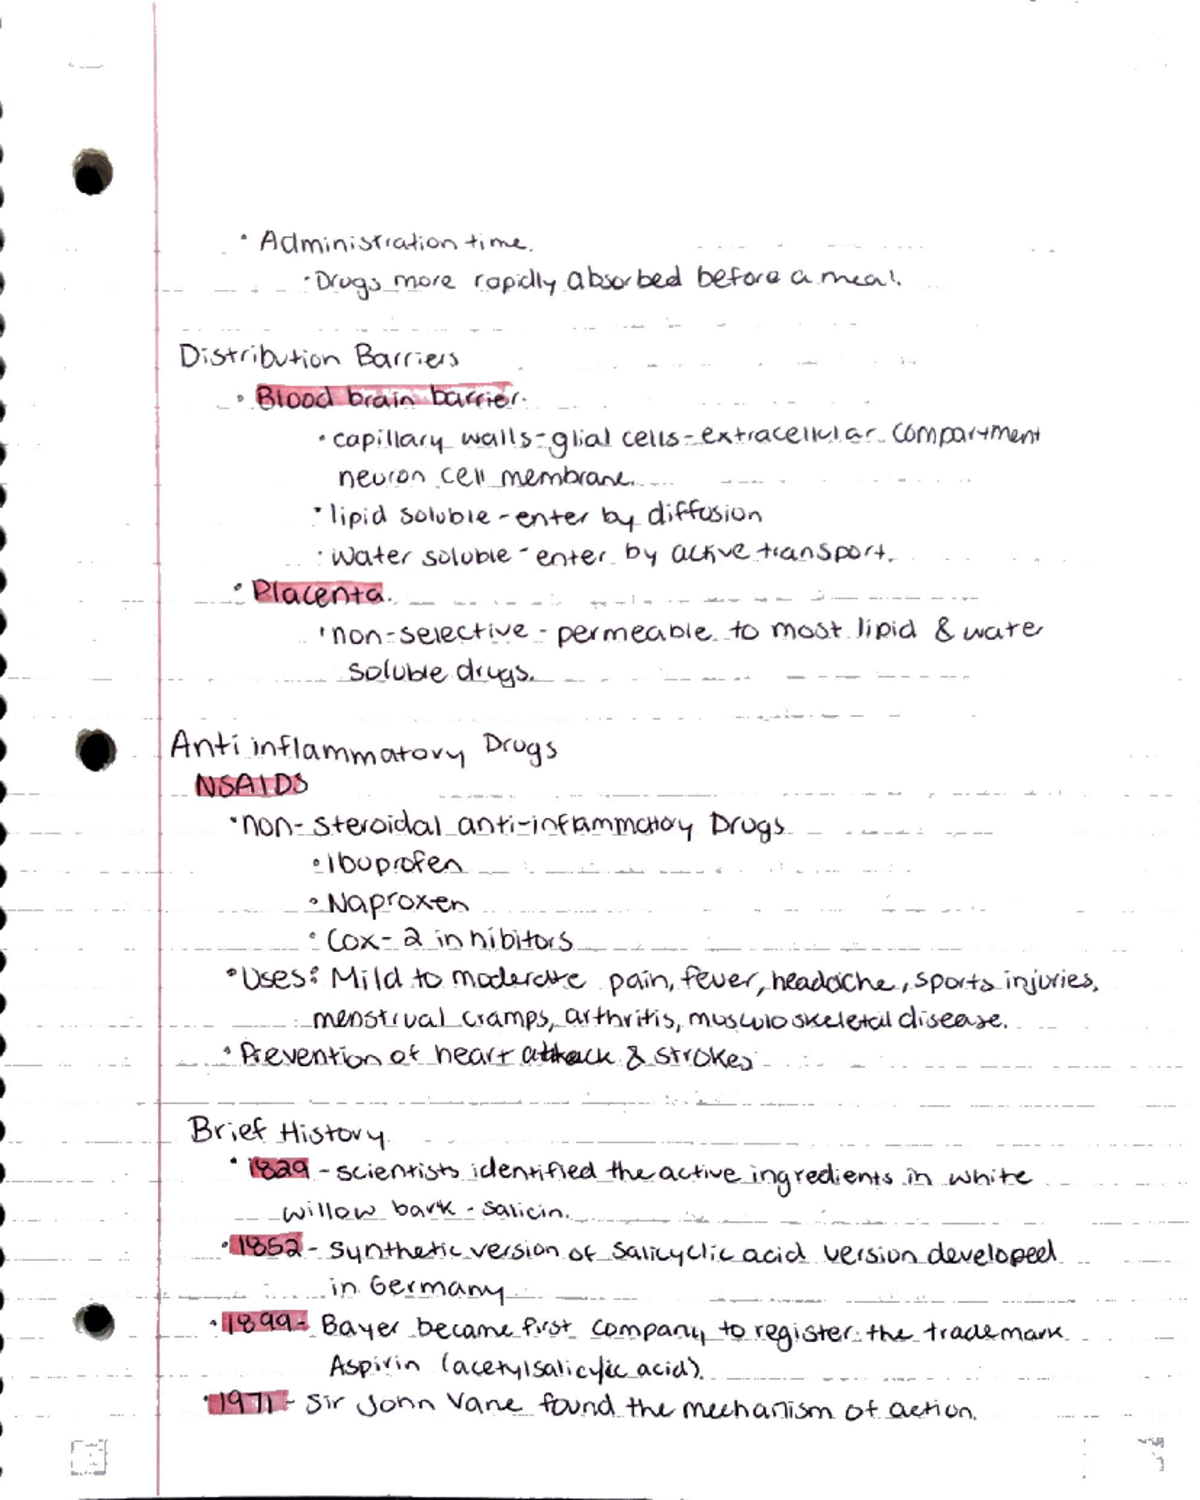 • Administration time.
• Drugs more rapidly absorbed before a meal.
Distribution Barriers
• Blood brain barrier.
• capillary walls - glial cells - extracellular compartment
neuron cell membrane.
• lipid soluble - enter by diffusion
• Water soluble - enter by active transport.
• Placenta.
• non-selective - permeable to most lipid & water
soluble drugs.
Anti inflammatory Drugs
NSAIDS
• non-steroidal anti-inflammatory Drugs
• Ibuprofen
• Naproxen
• Cox-2 inhibitors
• Uses: Mild to moderate pain, fever, headache, sports injuries,
menstrual cramps, arthritis, musculoskeletal disease.
• Prevention of heart attack & strokes
Brief History
• 1829 - scientists identified the active ingredients in white
willow bark - salicin.
• 1852 - synthetic version of salicyclic acid version developed
in Germany
• 1899 - Bayer became first company to register the trademark
Aspirin (acetylsalicylic acid).
• 1971 - Sir John Vane found the mechanism of action.